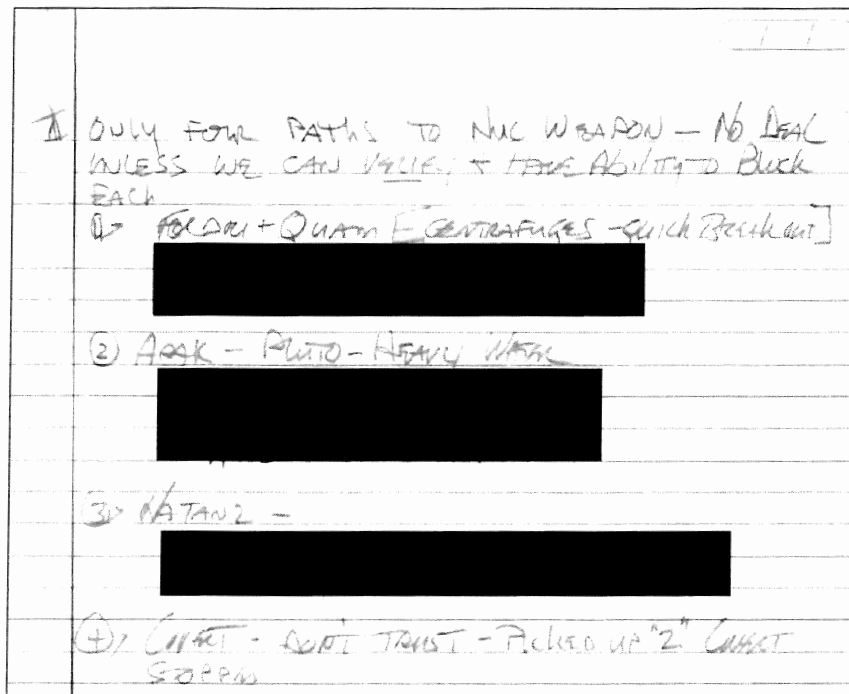 II ONLY FOUR PATHS TO NUC WEAPON — NO DEAL
UNLESS WE CAN VERIFY + HAVE ABILITY TO BLOCK
EACH
① FORDOW + QUAM CENTRAFUGES - QUICK BREAKOUT]
② ARAK - PLUTO - HEAVY WATER
③ NATANZ -
④ COVERT - DON'T TRUST - PICKED UP "2" COVERT